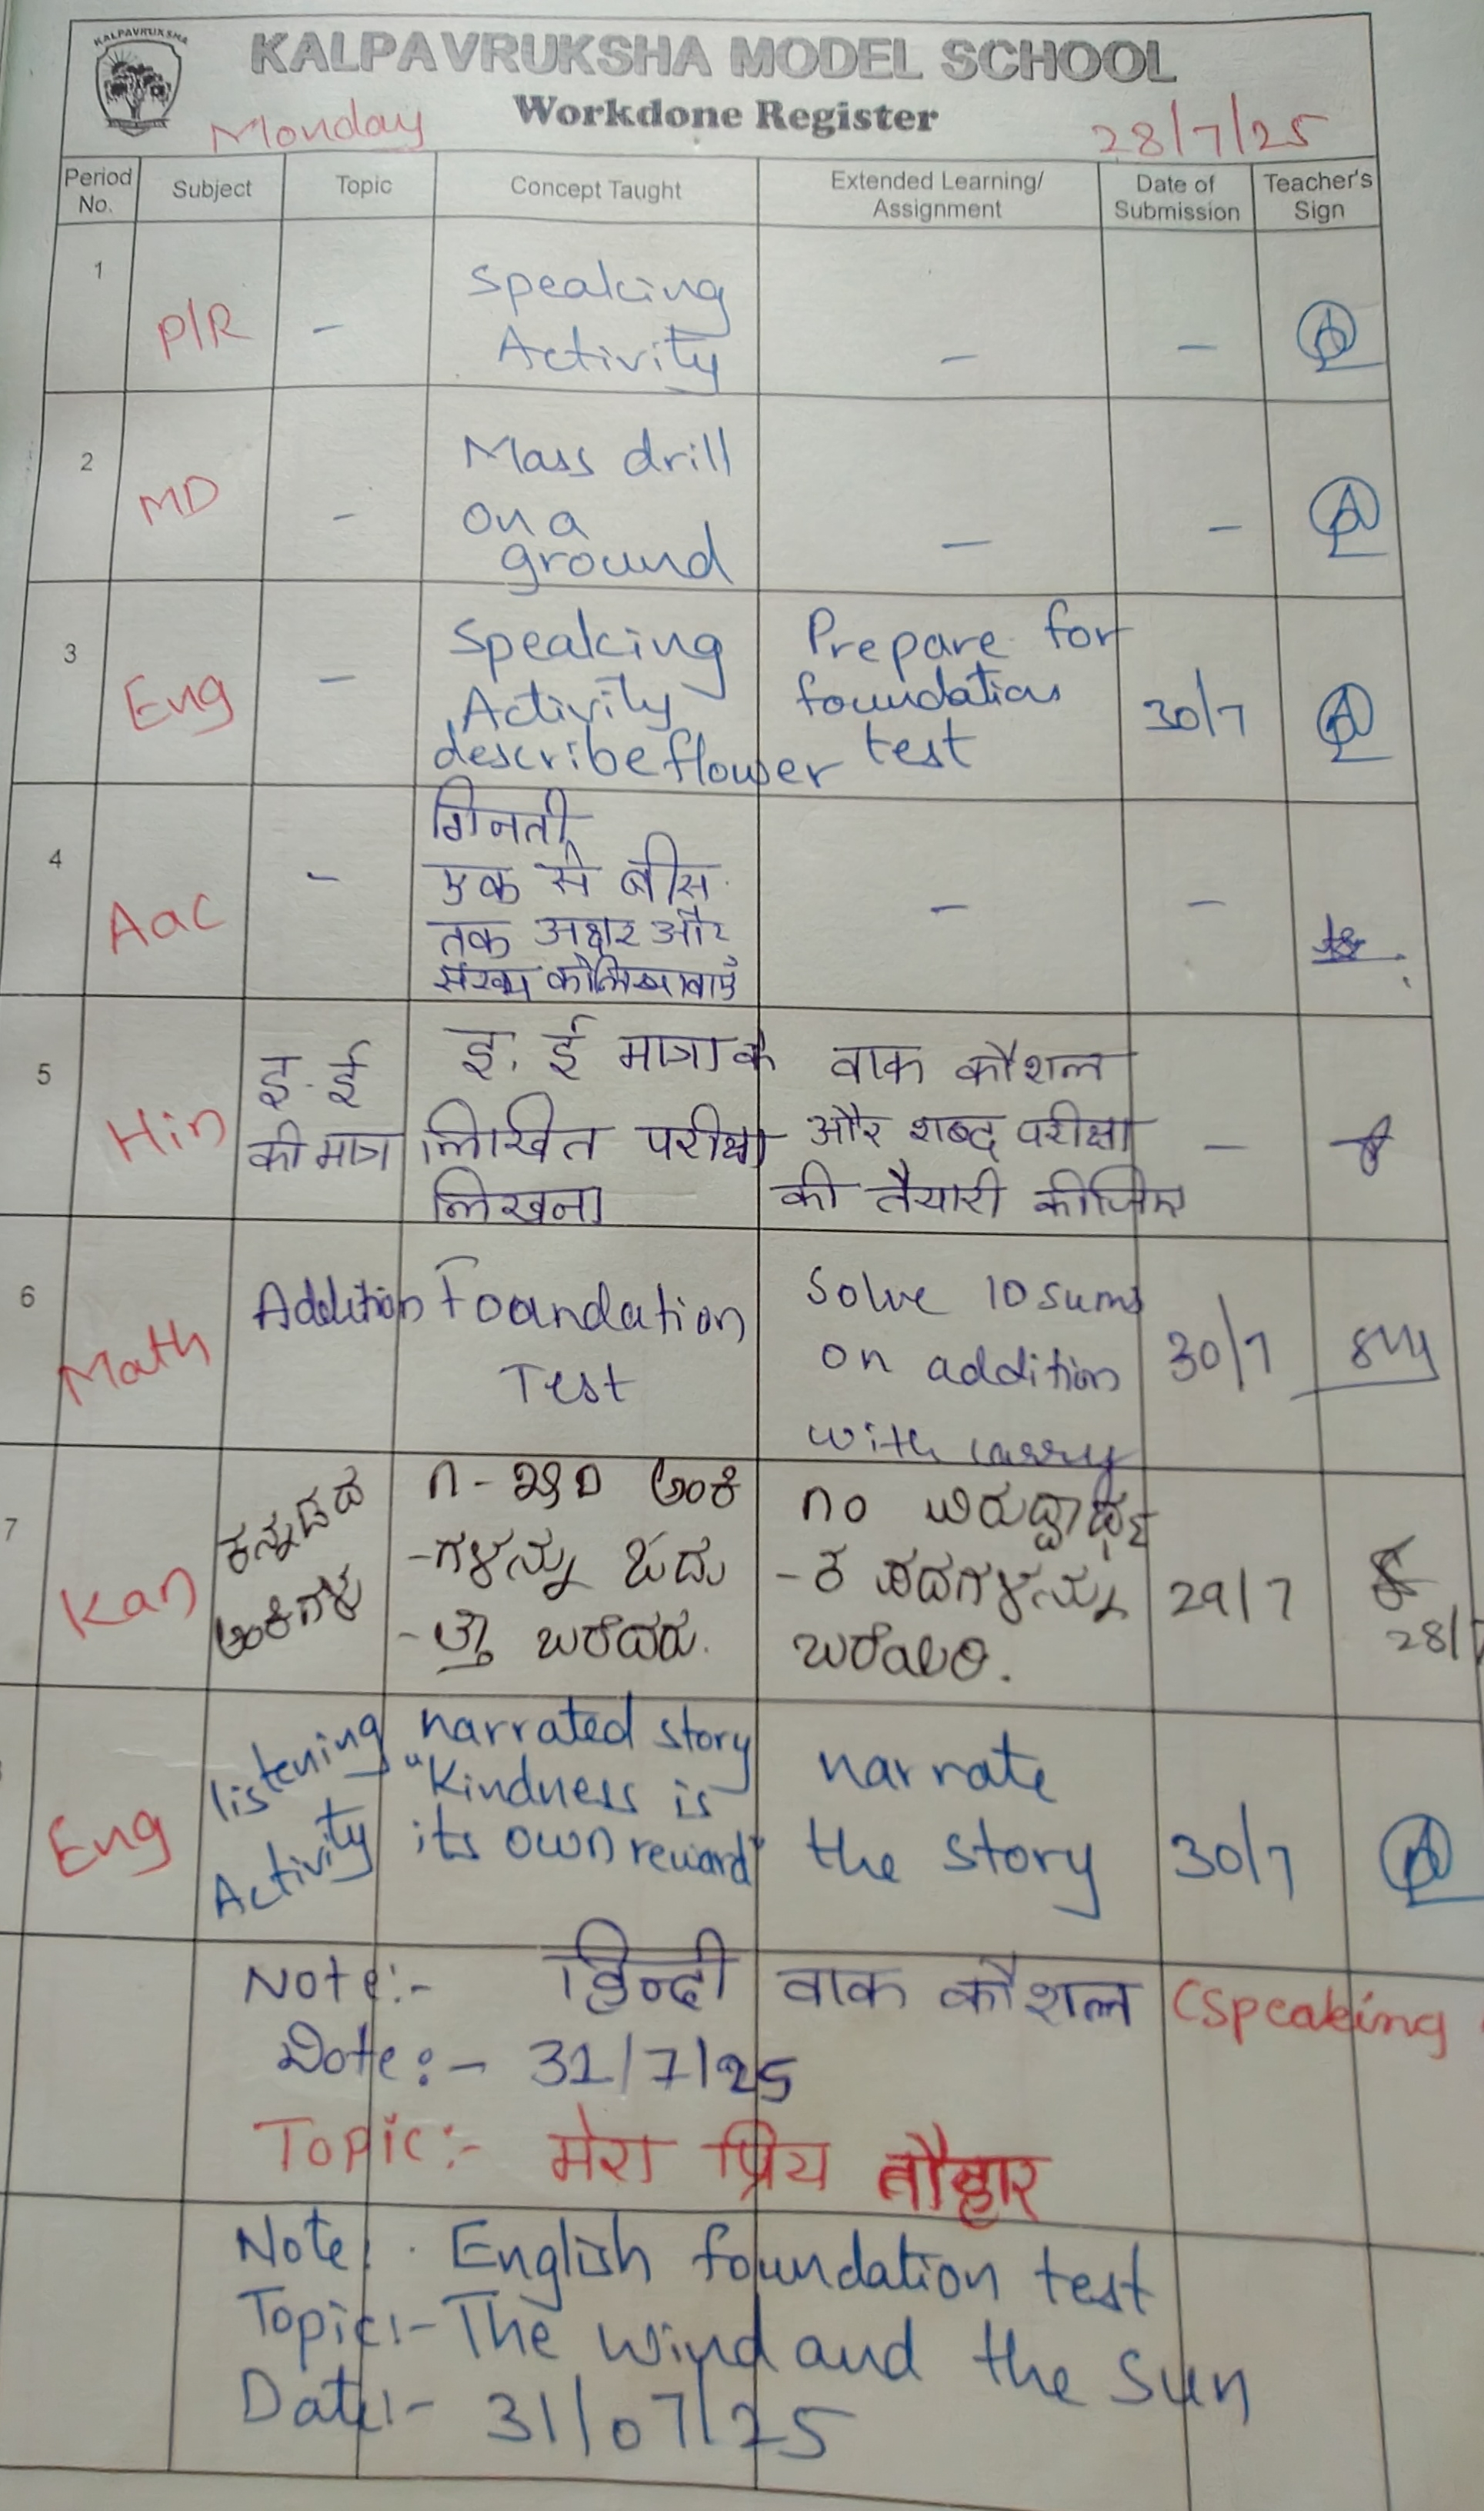 KALPAVRUKSHA
KALPAVRUKSHA MODEL SCHOOL
Workdone Register
Monday 28/7/25
Period No. Subject Topic Concept Taught Extended Learning/ Assignment Date of Submission Teacher's Sign
1 P/R - Speaking
Activity - -
2 MD - Mass drill
on a
ground - -
3 Eng - Speaking
Activity
describe flower
Prepare for
foundation
test
30/7
4 Aac - गिनती
एक से बीस
तक अक्षर और
- -
5 Hin
इ - ई
की मात्रा
इ, ई मात्रा के
लिखित परीक्षा
लिखना
वाक कौशल
और शब्द परीक्षा
की तैयारी कीजिए
-
6 Math
Addition
Foundation
Test
Solve 10 sums
on addition
with carry
30/7
7 Kan
ಕನ್ನಡದ
ಅಂಕಿಗಳು
ಅಂಕಿ
-ಗಳನ್ನು ಓದು
-ತ್ತಾ ಬರೆದರು.
೧೦ ವಿರುದ್ಧಾರ್ಥ
-ಕ ಪದಗಳನ್ನು
ಬರೆಯಿರಿ.
29/7
28/7
Eng
listening
Activity
narrated story
"Kindness is
its own reward"
narrate
the story
30/7
Note:- हिन्दी वाक कौशल (Speaking
Date:- 31/7/25
Topic:- मेरा प्रिय तौहार
Note: English foundation test
Topic:- The wind and the Sun
Date:- 31/07/25